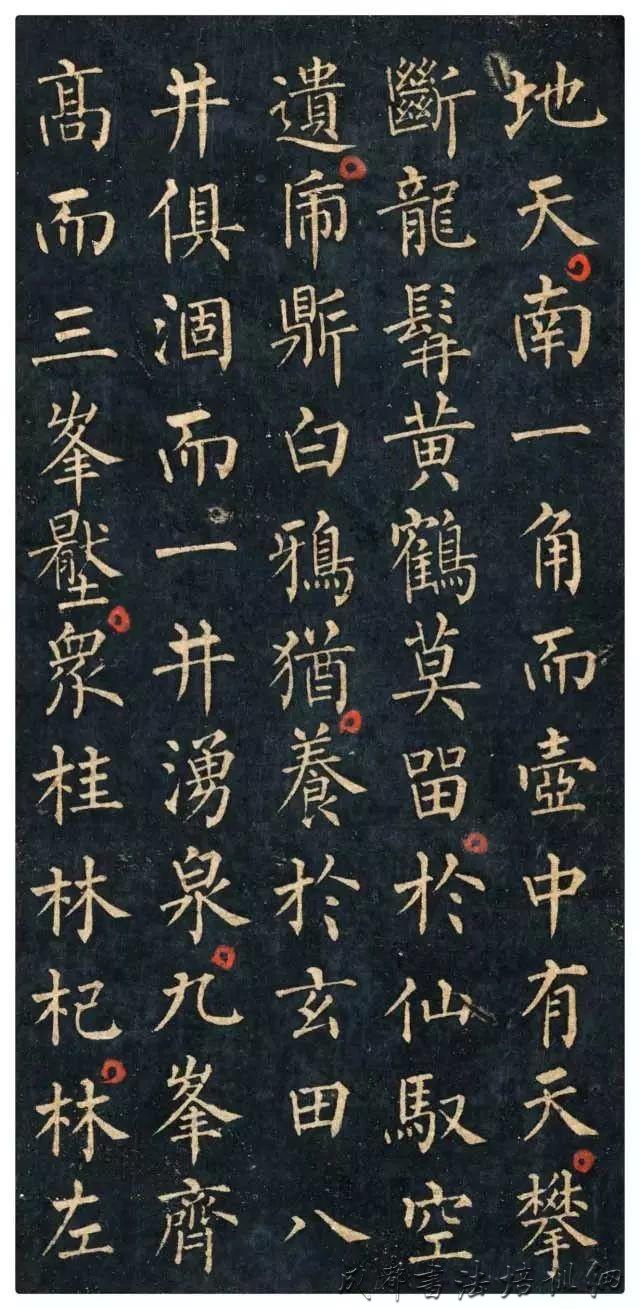 地天南一角而壺中有天攀
斷龍髯黃鶴莫留於仙馭空
遺乕鼎白鴉猶養於玄田八
井俱涸而一井湧泉九峯齊
髙而三峯壓眾桂林杞林左
成都书法培训网